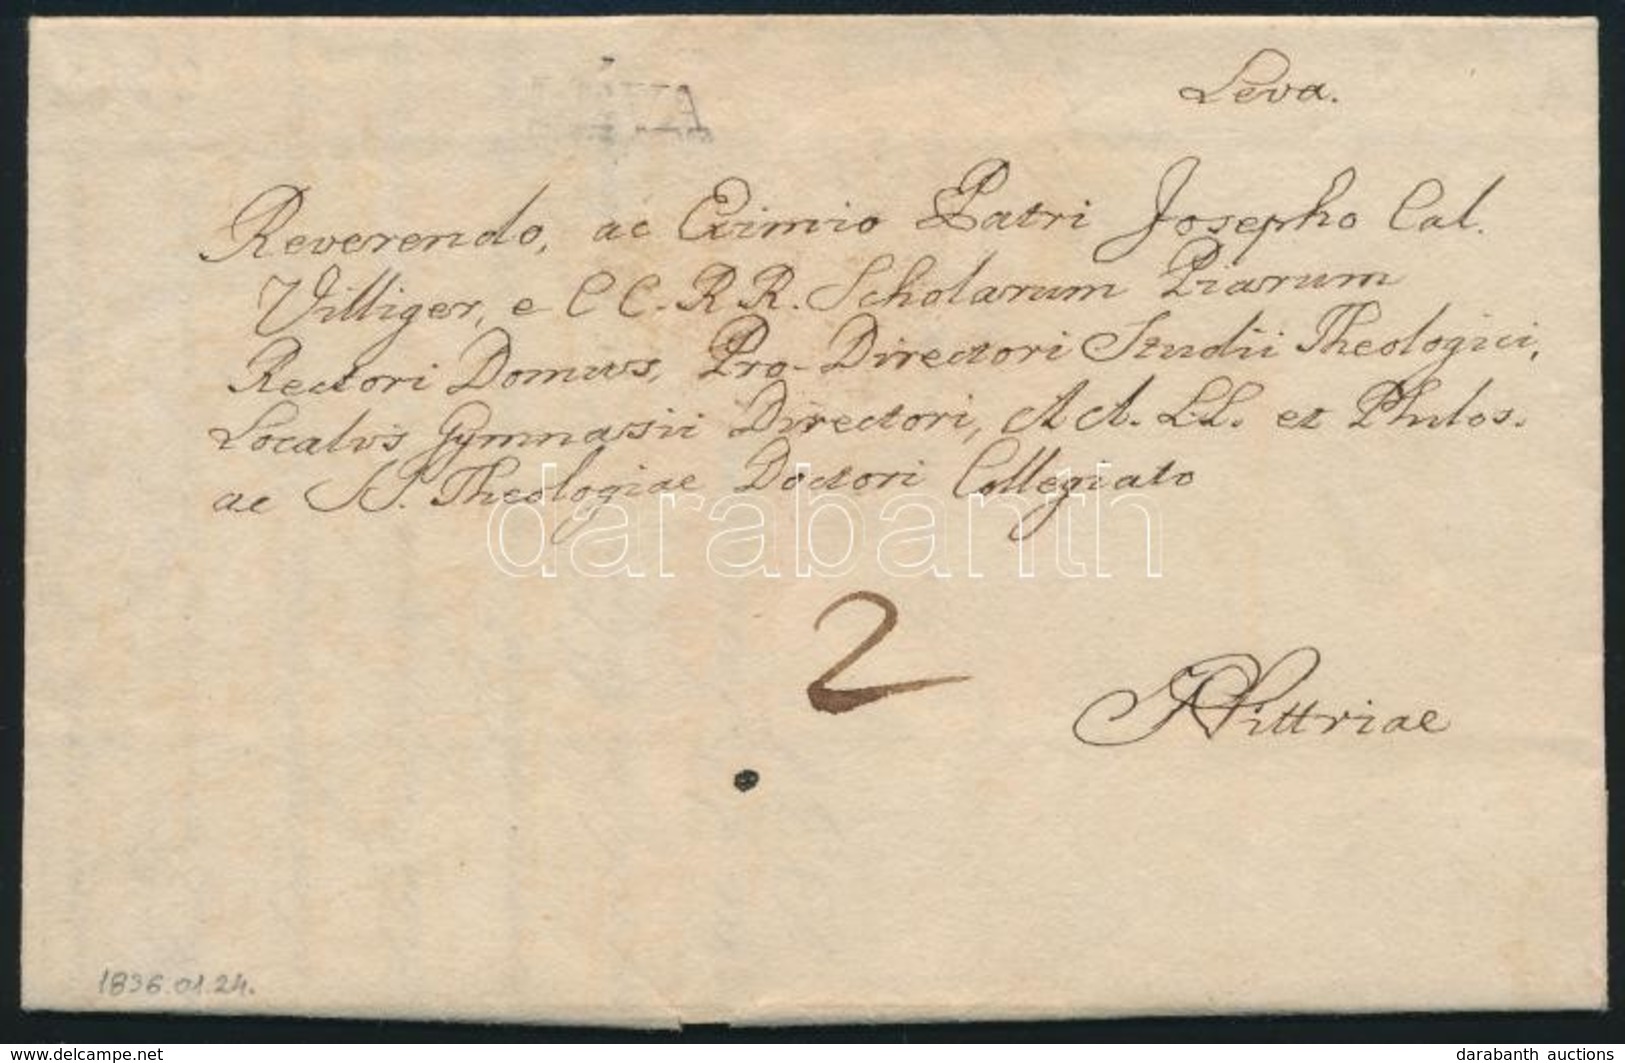 Leva.
Reverendo, ac Eximio Patri Josepho Cal.
Villiger, e CC. RR. Scholarum Piarum
Rectori Domus, Pro-Directori Studii Theologici,
Localis Gymnasii Directori, AA. LL. et Philos.
ac SS. Theologiae Doctori Collegiato
darabanth
2
Nittriae
1836.01.24.
www.delcampe.net
darabanth auctions